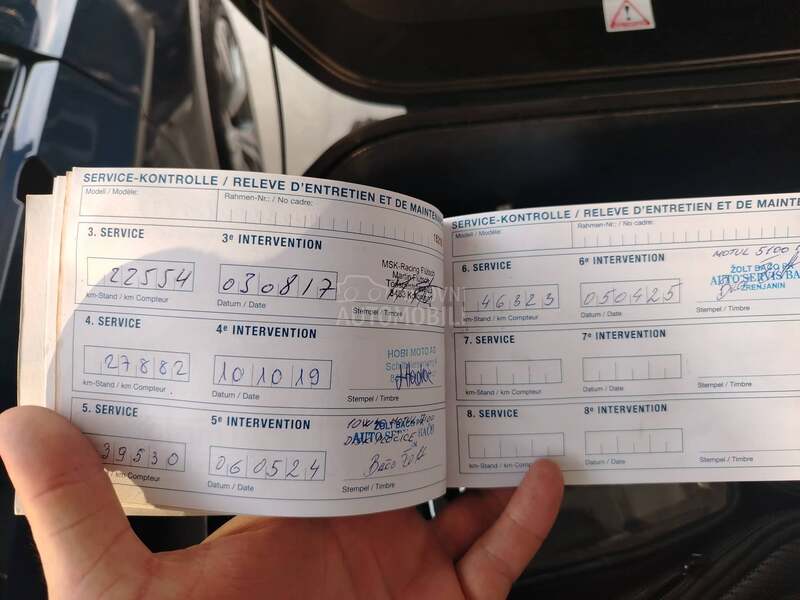 SERVICE-KONTROLLE / RELEVE D'ENTRETIEN ET DE MAINTEN
Modell / Modèle:
Rahmen-Nr.: / No cadre:
3. SERVICE
3e INTERVENTION
22554
030817
MSK-Racing Flütsch
Martin Flütsch
km-Stand / km Compteur
Datum / Date
Stempel / Timbre
4. SERVICE
4e INTERVENTION
27882
101019
HOBI MOTO AG
km-Stand / km Compteur
Datum / Date
Stempel / Timbre
5. SERVICE
5e INTERVENTION
39530
060524
ŽOLT BAČO PR
AUTO SERVIS BAČO
Bačo Žolt
km Compteur
Datum / Date
Stempel / Timbre
SERVICE-KONTROLLE / RELEVE D'ENTRETIEN ET DE MAINTE
Modell / Modèle:
Rahmen-Nr.: / No cadre:
6. SERVICE
6e INTERVENTION
46323
050425
MOTUL 5100
ŽOLT BAČO PR
AUTO SERVIS BA
ZRENJANIN
km-Stand / km Compteur
Datum / Date
Stempel / Timbre
7. SERVICE
7e INTERVENTION
km-Stand / km Compteur
Datum / Date
Stempel / Timbre
8. SERVICE
8e INTERVENTION
km-Stand / km Compteur
Datum / Date
Stempel / Timbre
POLOVNI
AUTOMOBILI